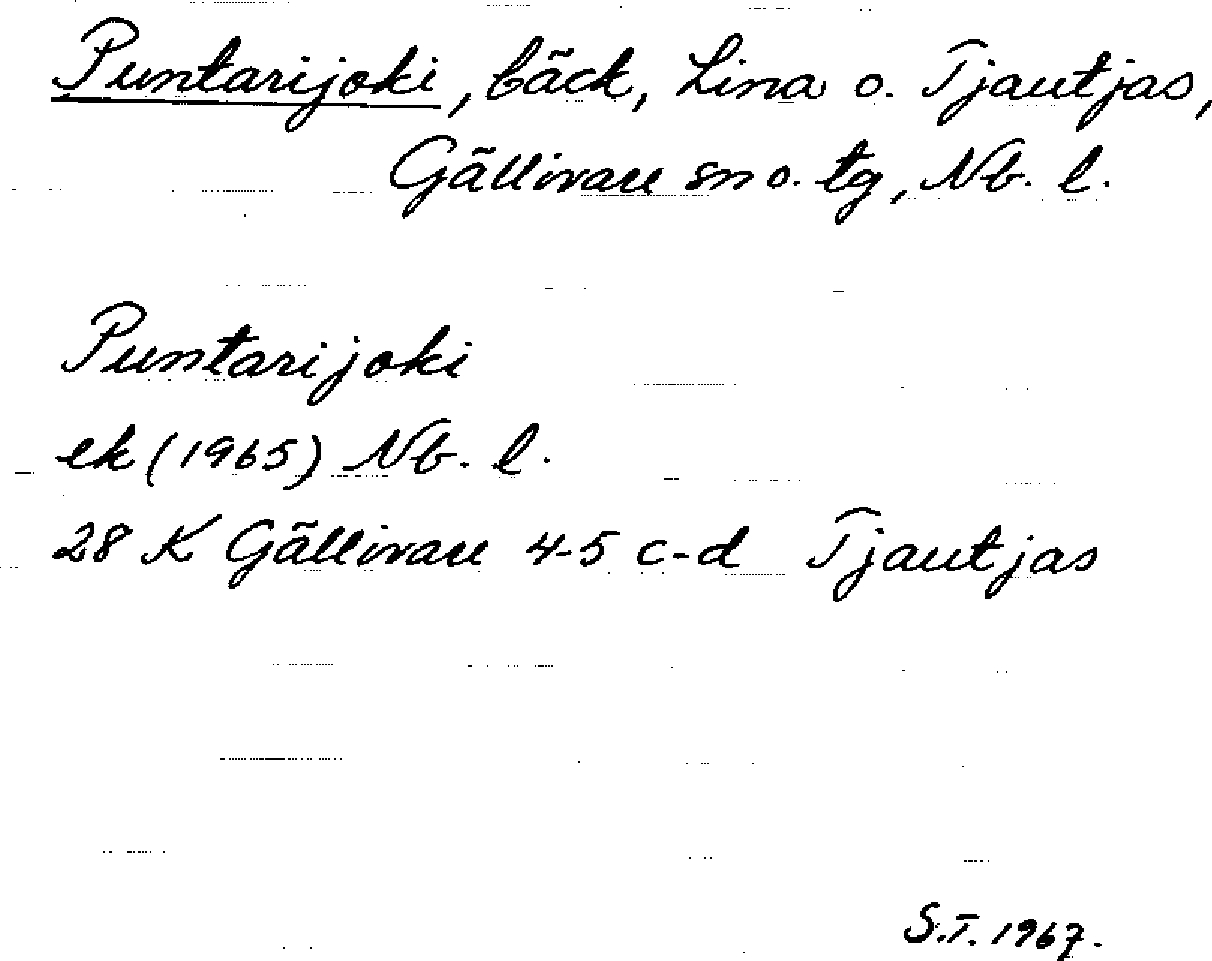 Puntarijoki, bäck, Lina o. Tjautjas,
Gällivare sn o. tg, Nb. l.
Puntarijoki
ek (1965) Nb. l.
28 K Gällivare 4-5 c-d Tjautjas
S.T. 1967.